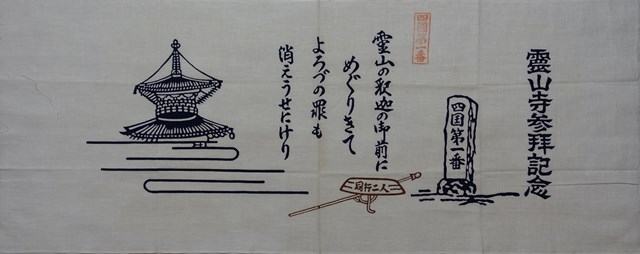 靈山寺参拝記念
四国第一番
四国第一番
霊山の釈迦の御前に
めぐりきて
よろづの罪も
消えうせにけり
同行二人